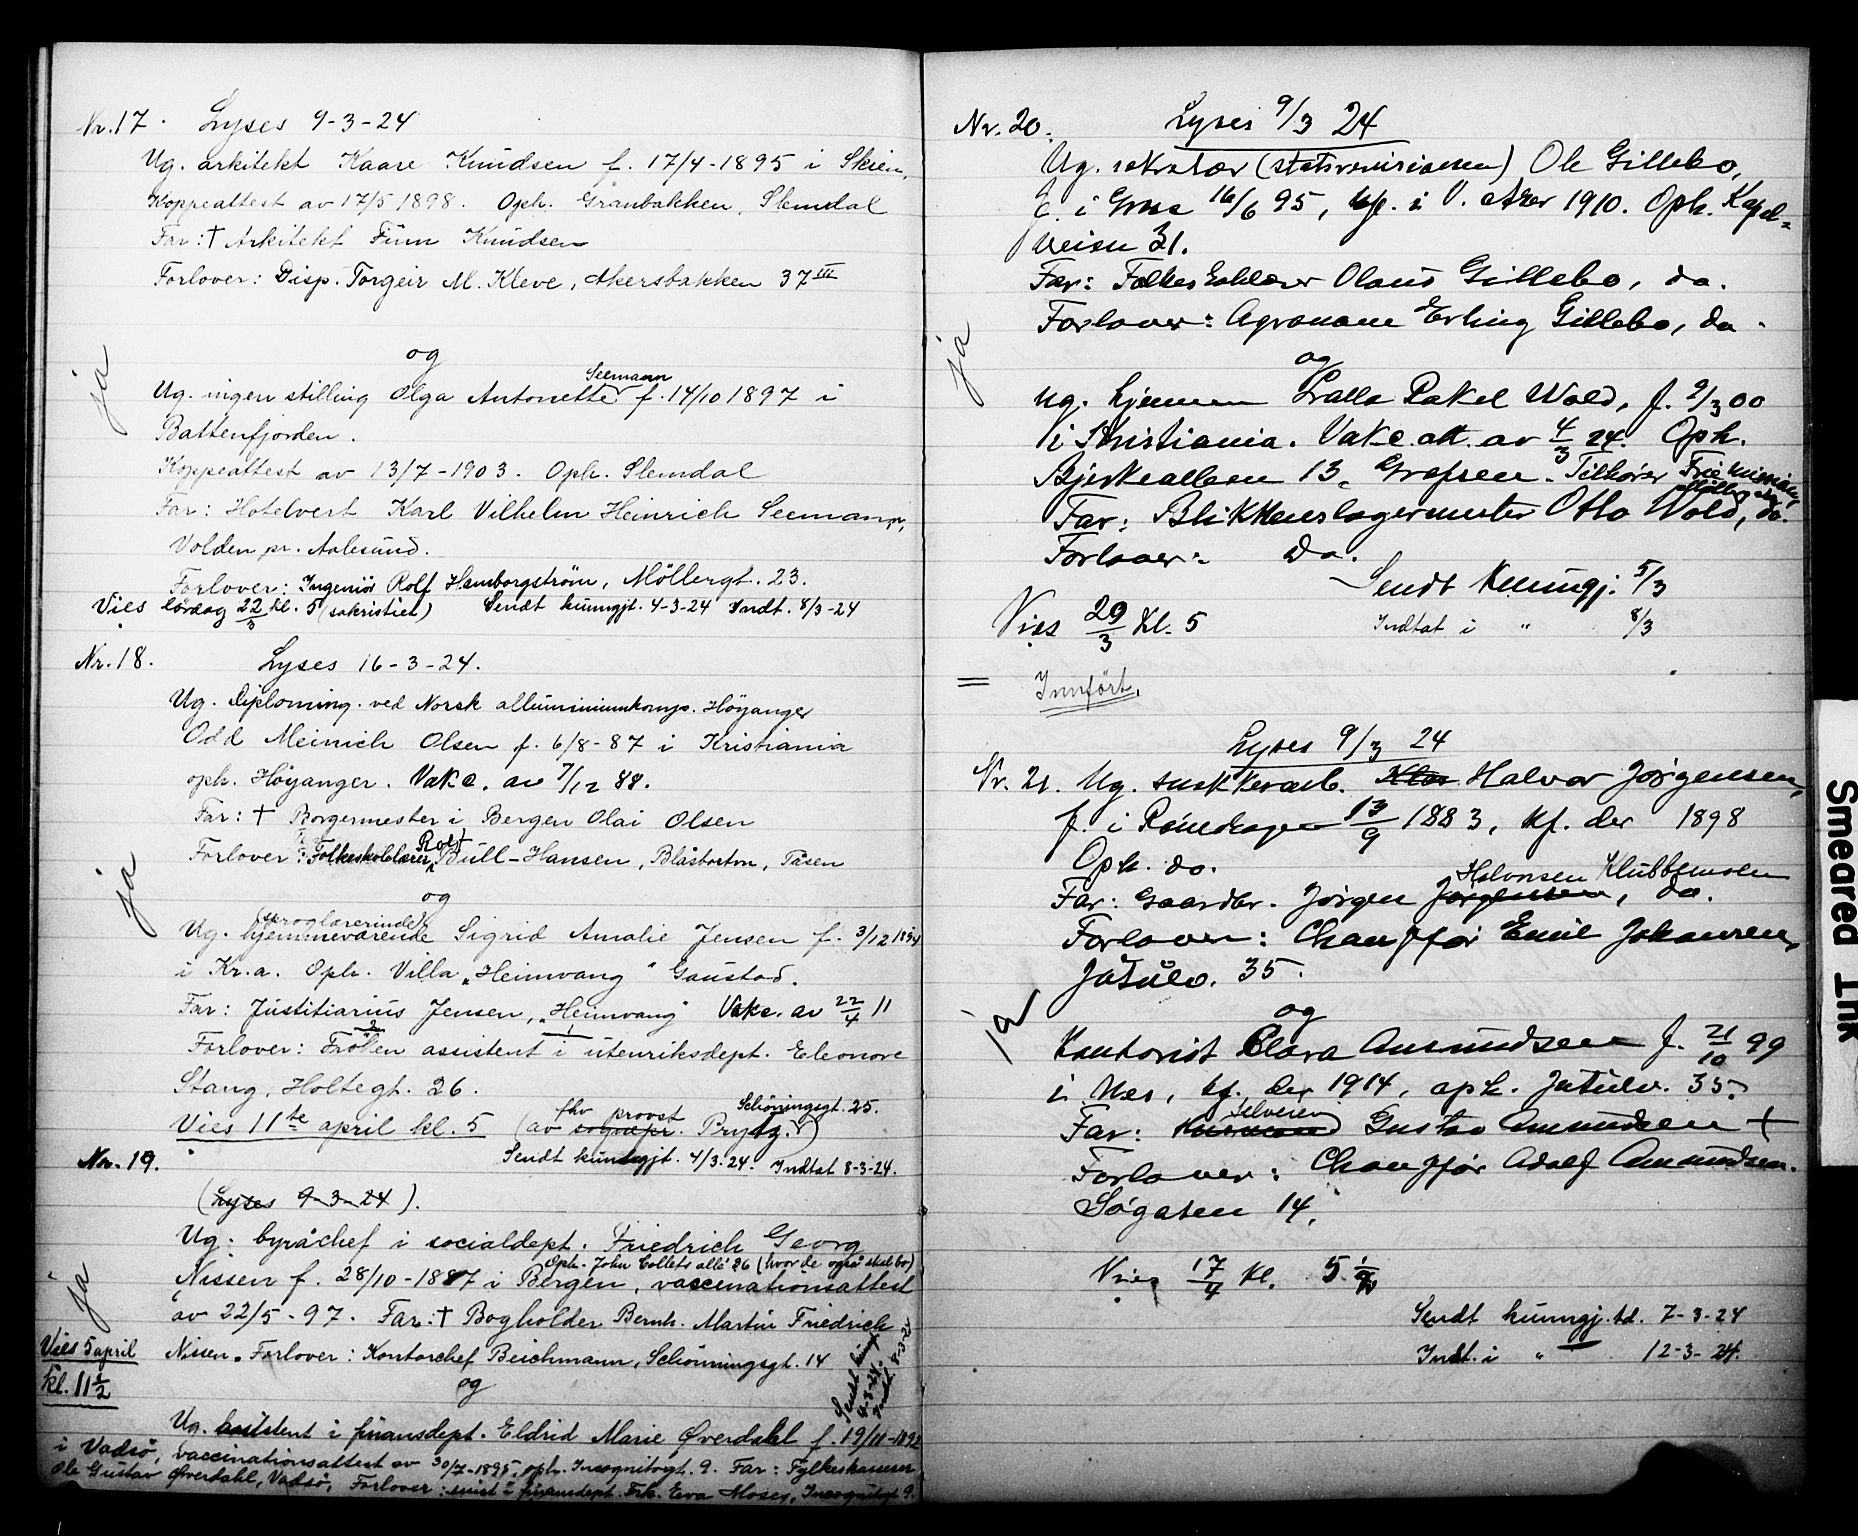 Nr. 17. Lyses 9-3-24
Ug. arkitekt Kaare Knudsen f. 17/4-1895 i Skien,
Koppeattest av 17/5 1898. Oph. Granbakken, Slemdal
Far: † Arkitekt Finn Knudsen
Forlover: Disp. Torgeir M. Kleve, Akersbakken 37 III
og
ja
Seemann
Ug. ingen stilling Olga Antonette f. 14/10 1897 i
Battenfjorden.
Koppeattest av 13/7-1903. Oph. Slemdal
Far: Hotelvert Karl Vilhelm Heinrich Seemann,
Volden pr. Aalesund.
Forlover: Ingeniör Rolf Hamborgström, Möllergt. 23.
Vies lördag 22/3 kl. 5 (sakristiet) Sendt kunngjt. 4-3-24 Indt. 8/3-24
Nr. 18. Lyses 16-3-24.
Ug. Diploming. ved Norsk alluminiumkomp. Höyanger
Odd Meinich Olsen f. 6/8-87 i Kristiania
oph. Höyanger. Vakc. av 7/12 88.
Far: † Borgermester i Bergen Olai Olsen
Rolf
Forlover: Folkeskolelærer Bull-Hansen, Blåsborton, Tåsen
ja
og
(sproglærerinde)
Ug. hjemmeværende Sigrid Amalie Jensen f. 3/12 1894
i Kr.a. Oph. Villa „Heimvang" Gaustad.
Far: Justitiarius Jensen, „Heimvang" Vakc. av 22/4 11
Forlover: Fröken assistent i utenriksdept. Eleonore
Stang, Holtegt. 26.
fhv provst Schöningsgt. 25.
Vies 11te april kl. 5 (av sognepr. Prydz.)
Sendt kunngjt. 4/3-24. Indtat 8-3-24.
Nr. 19.
(Lyses 9-3-24).
Ug. byråchef i socialdept. Friedrich Georg
Oph. John Collets allé 26 (hvor de også skal bo)
Nissen f. 28/10-1887 i Bergen, vaccinationsattest
ja
av 22/5-97. Far: † Bogholder Bernh. Martin Friedrich
Vies 5 april
kl. 11 1/2
Nissen. Forlover: Kontorchef Beichmann, Schönningsgt. 14
og
Sendt kunngj.
4-3-24.
Indt. 8-3-24
Ug. assistent i finansdept. Eldrid Marie Øverdahl f. 19/11-1892
i Vadsö, vaccinationsattest av 30/7-1895, oph. Incognitogt. 9. Far: Fylkeskasserer
Ole Gustav Øverdahl, Vadsö, Forlover: assist i finansdept. Frk. Eva Moses, Incognitogt. 9.
Nr. 20. Lyses 9/3 24
Ug. sekretær (statsrevisionen) Ole Gillebo,
f. i Grue 16/6 95, kf. i V. Aker 1910. Oph. Kapel-
veien 31.
Far: Folkeskolelærer Olaus Gillebo, do.
Forlover: Agronom Erling Gillebo, do.
ja
og
Ug. hjemme Lalla Rakel Wold, f. 9/3 00
i Kristiania. Vakc. att. av 4/3 24. Oph.
Bjerkealleen 13, Grefsen. Tilhörer Frie
Far: Blikkenslagermester Otto Wold, do.
Forlover: Do.
Sendt Kunngj: 5/3
Vies 29/3 Kl. 5
Indtat i " 8/3
= Innført.
Lyses 9/3 24
Nr. 21. Ug. snekkerarb. Halvor Jørgensen,
f. i Romedagen 13/9 1883, kf. der 1898
Oph. do.
Halvorsen Klubbemoen
Far: Gaardbr. Jørgen Jørgensen, do.
Forlover: Chauffør Emil Johansen,
Jutulv. 35.
ja
og
Kontorist Clara Amundsen f. 21/10 99
i Nes, kf. der 1914, oph. Jutulv. 35.
Far: Gustav Amundsen †
Forlover: Chauffør Adolf Amundsen.
Søgaten 14.
Vies 17/4 Kl. 5 1/2
Sendt kunngj. td. 7-3-24
Indt. i " 12-3-24.
Smeared Ink